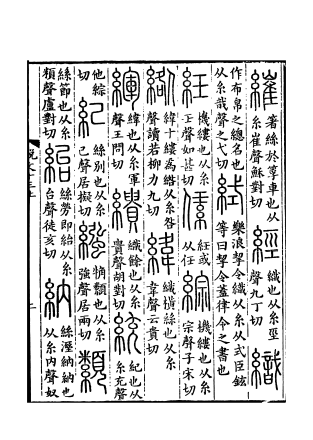 繀 著絲於莩車也从糸崔聲穌對切 經 織也从糸巠聲九丁切 織
作布帛之總名也从糸戠聲之弋切 𦀗 樂浪挈令織从糸从式臣鉉等曰挈令蓋律令之書也
紝 機縷也从糸壬聲如甚切 𦀖 紝或从任 綜 機縷也从糸宗聲子宋切
綹 緯十縷為綹从糸咎聲讀若柳力久切 緯 織橫絲也从糸韋聲云貴切
緷 緯也从糸軍聲王問切 繢 織餘也从糸貴聲胡對切 統 紀也从糸充聲
他綜切 紀 絲別也从糸己聲居擬切 繦 觕纇也从糸強聲居兩切 纇
絲節也从糸頪聲盧對切 紿 絲勞即紿从糸台聲徒亥切 納 絲溼納納也从糸內聲奴